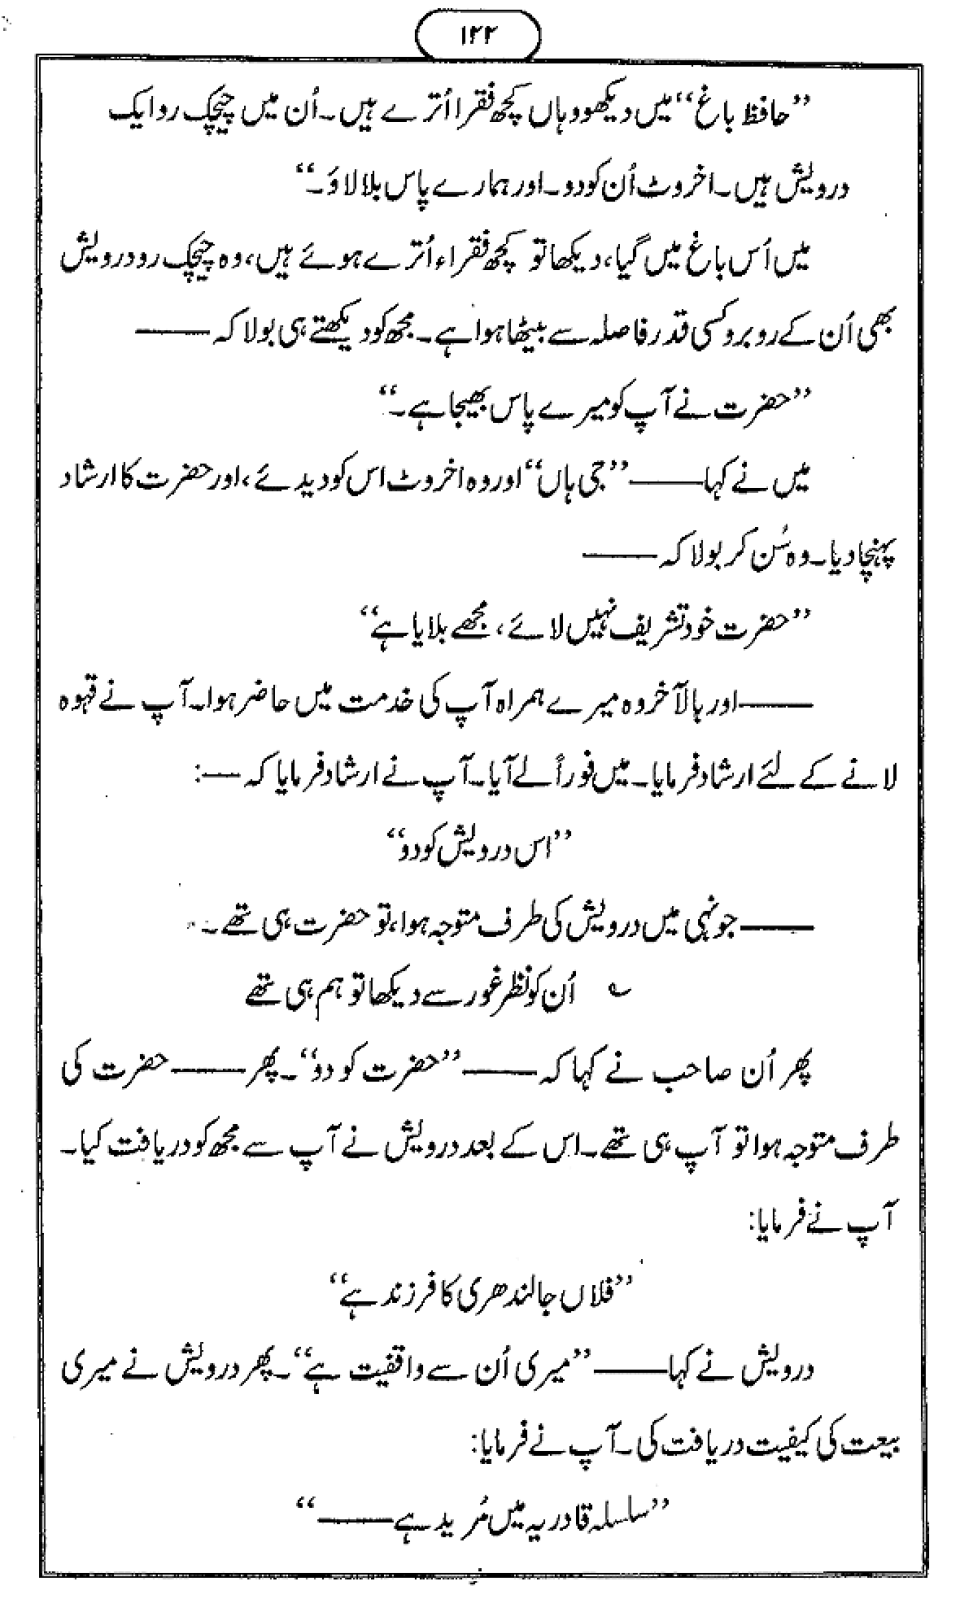 ۱۲۲
”حافظ باغ“ میں دیکھو وہاں کچھ فقرا اُترے ہیں۔ اُن میں چیچک رو ایک
درویش ہیں۔ اخروٹ اُن کو دو۔ اور ہمارے پاس بلا لاؤ۔“
میں اُس باغ میں گیا، دیکھا تو کچھ فقراء اُترے ہوئے ہیں، وہ چیچک رو درویش
بھی اُن کے روبرو کسی قدر فاصلہ سے بیٹھا ہوا ہے۔ مجھ کو دیکھتے ہی بولا کہ ——
”حضرت نے آپ کو میرے پاس بھیجا ہے۔“
میں نے کہا —— ”جی ہاں“ اور وہ اخروٹ اس کو دیدئے، اور حضرت کا ارشاد
پہنچا دیا۔ وہ سُن کر بولا کہ ——
”حضرت خود تشریف نہیں لائے، مجھے بلایا ہے“
—— اور بالآخر وہ میرے ہمراہ آپ کی خدمت میں حاضر ہوا۔ آپ نے قہوہ
لانے کے لئے ارشاد فرمایا۔ میں فوراً لے آیا۔ آپ نے ارشاد فرمایا کہ —:
”اس درویش کو دو“
—— جونہی میں درویش کی طرف متوجہ ہوا، تو حضرت ہی تھے۔
؎ اُن کو نظر غور سے دیکھا تو ہم ہی تھے
پھر اُن صاحب نے کہا کہ —— ”حضرت کو دو“۔ پھر —— حضرت کی
طرف متوجہ ہوا تو آپ ہی تھے۔ اس کے بعد درویش نے آپ سے مجھ کو دریافت کیا۔
آپ نے فرمایا:
”فلاں جالندھری کا فرزند ہے“
درویش نے کہا —— ”میری اُن سے واقفیت ہے“۔ پھر درویش نے میری
بیعت کی کیفیت دریافت کی۔ آپ نے فرمایا:
”سلسلہ قادریہ میں مُرید ہے ——“